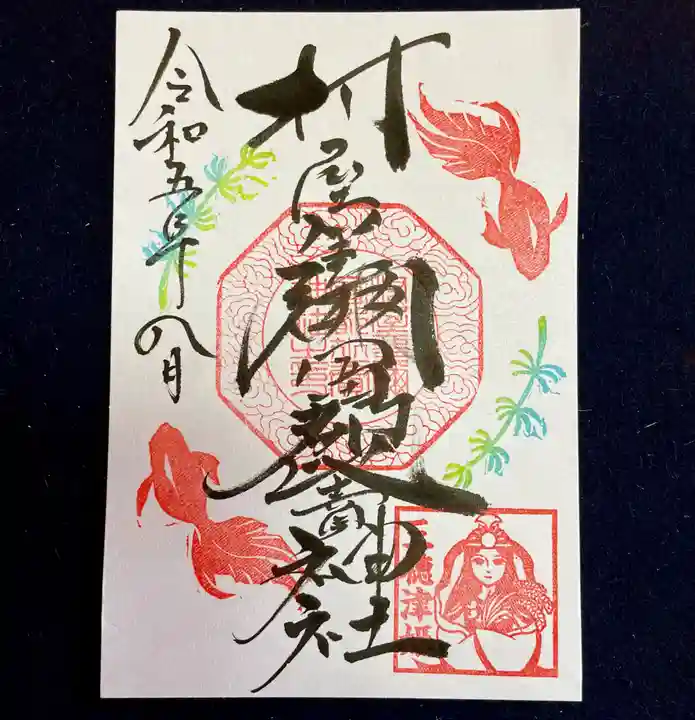 村屋坐彌冨都比賣神社
令和五年八月
三穂津姫